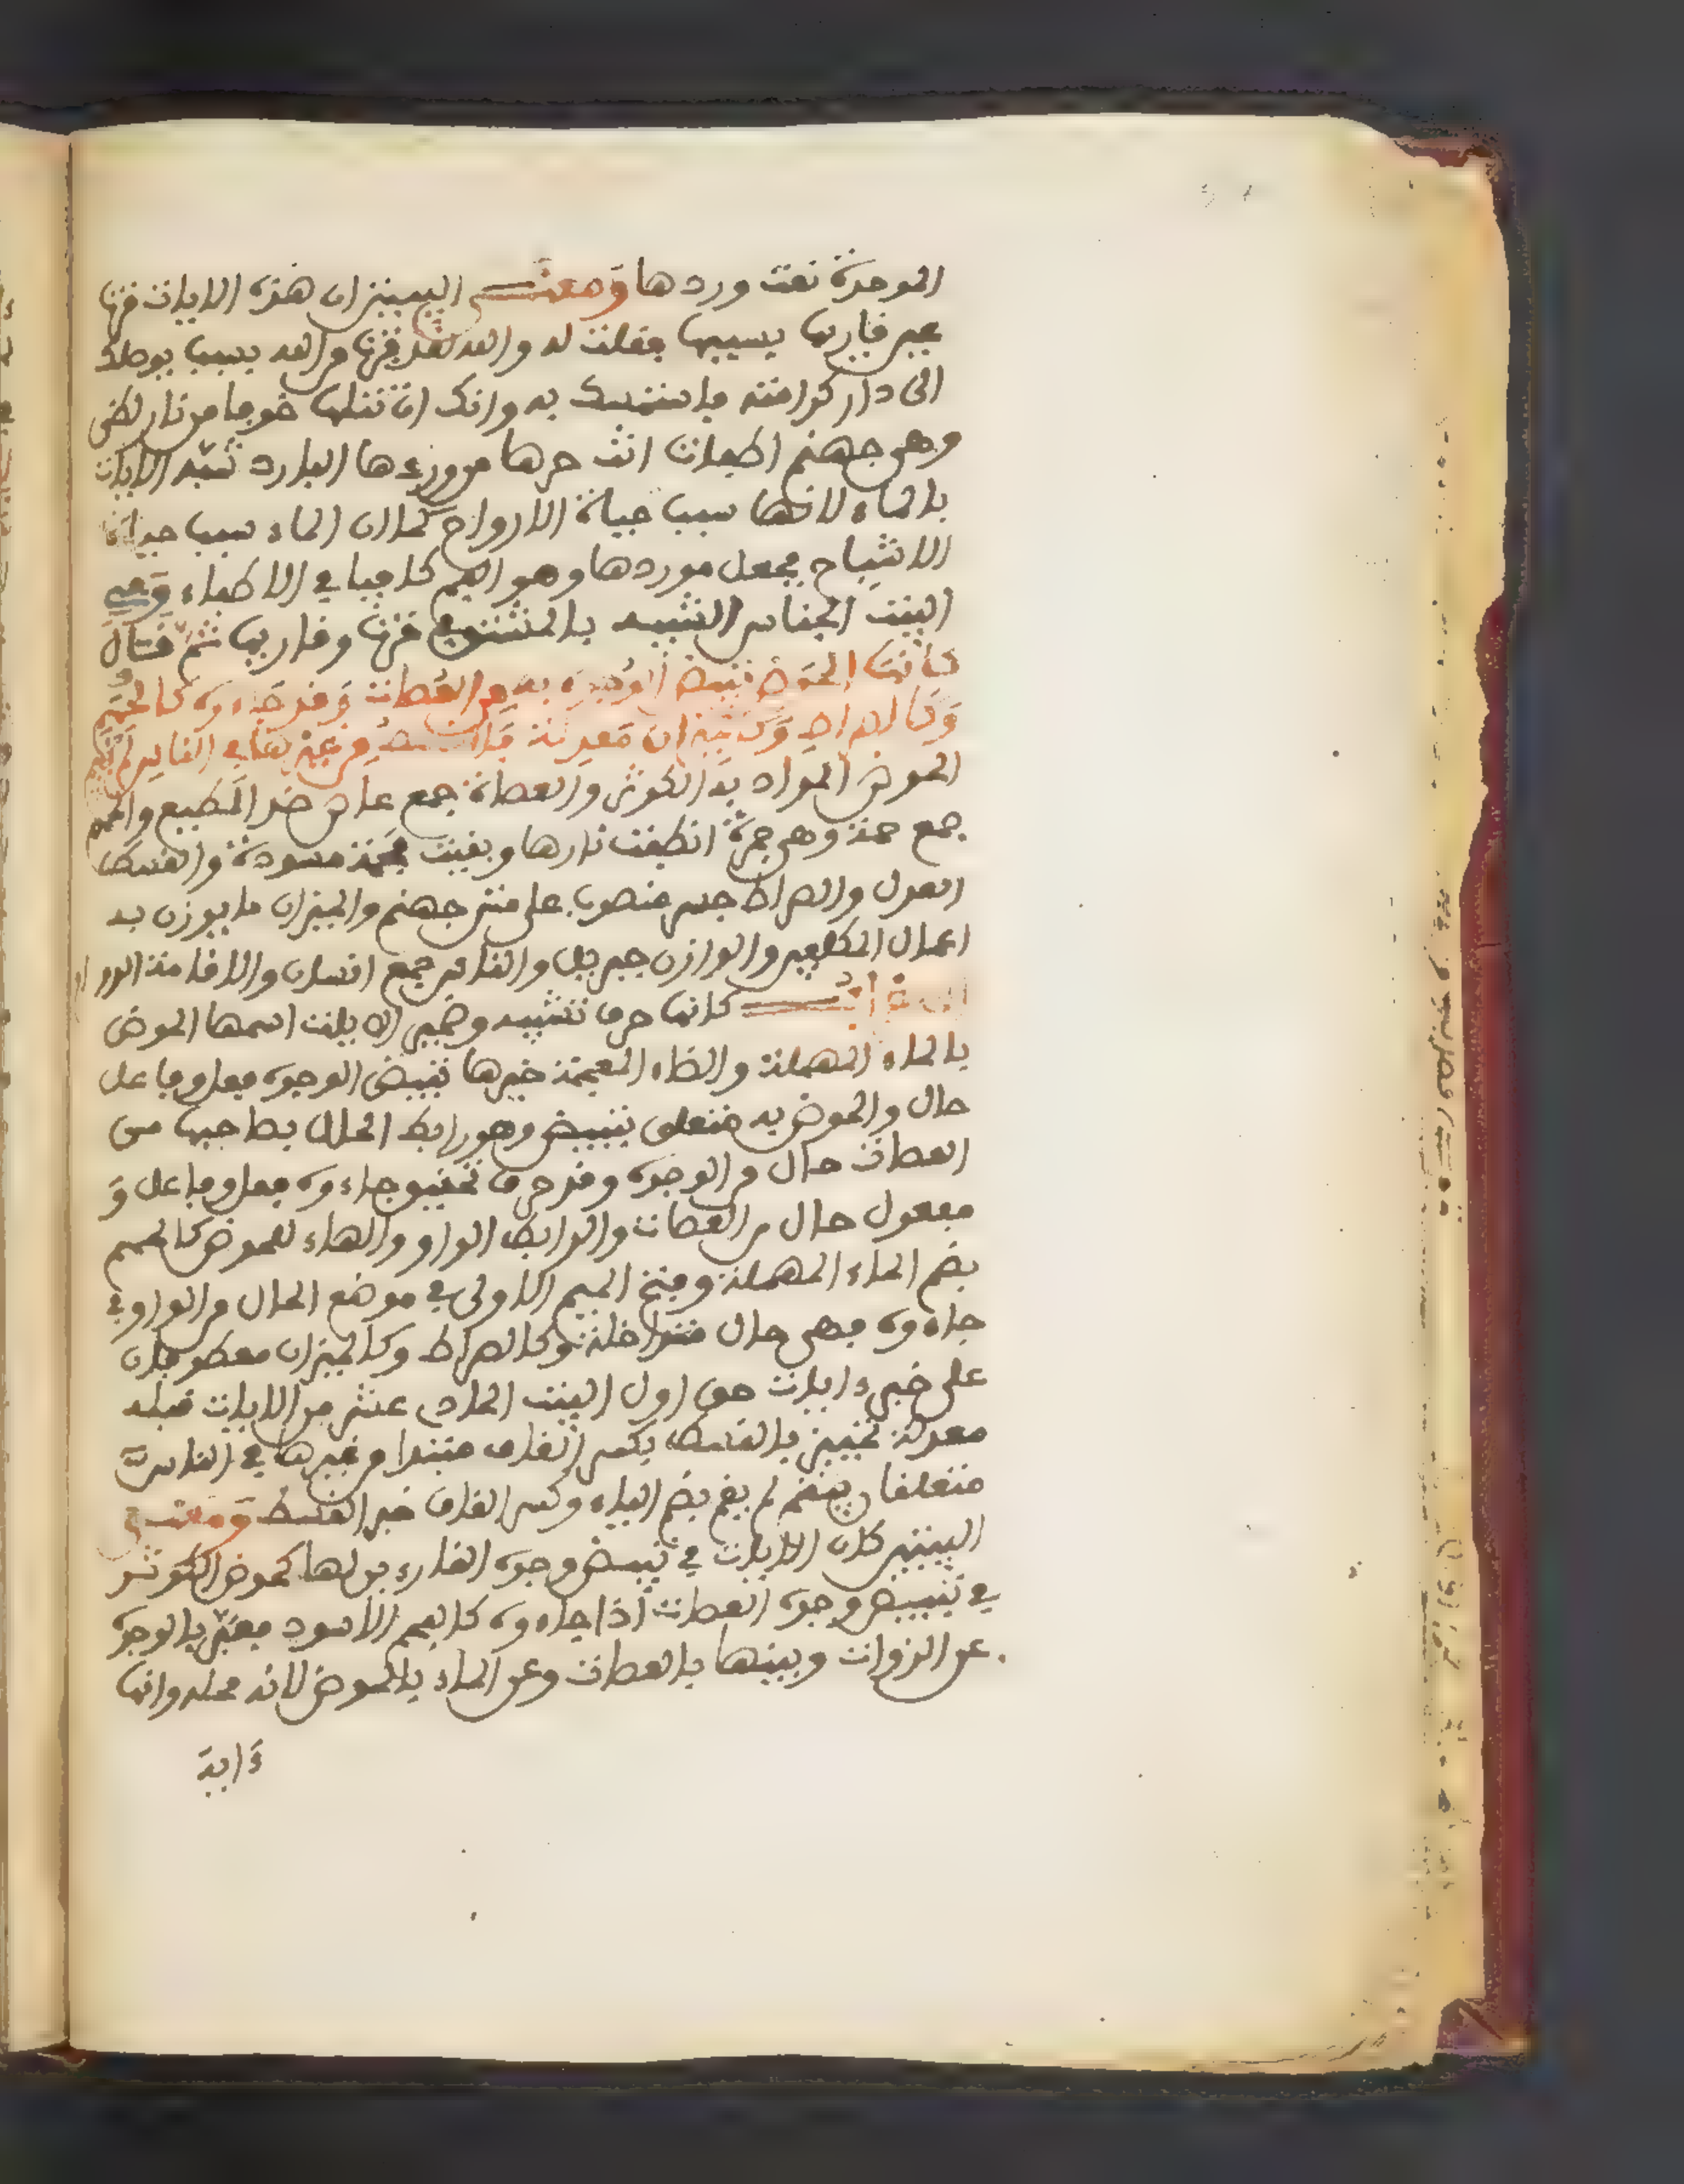 الموحدة نعت وردها ومعنى البيتين ان هذه الايات قرت
عين قاريها بسببها فقلت له والله لقد ظفرت من الله بسبب يوصلك
الى دار كرامته فاستمسك به وانك ان تتلها خوفا من نار لظى
وهي جهنم اطفات انت حرها من وردها البارد شبه الايات
بالماء لانها سبب حياة الارواح كما ان الماء سبب حياة
الاشباح فجعل موردها وهو الفم كافيا في الاطفاء وفي
البيت الجناس الشبيه بالمشتق في قرت وقاريها ثم قال
كانها الحوض تبيض الوجوه به من العصات وقد جاءوه كالحمم
وكالصراط وكالميزان معدلة فالقسط من غيرها في الناس لم يقم
الحوض المراد به الكوثر والعصاة جمع عاص ضد المطيع والحمم
جمع حمة وهي جمرة انطفت نارها وبقيت فحمة مسودة والقسط
العدل والصراط جسر منصوب على متن جهنم والميزان ما يوزن به
اعمال المكلفين والوازن جبريل والناس جمع انسان والاقامة الدوام
الاعراب كانها حرف تشبيه وضمير الايات اسمها الحوض
بالحاء المهملة والضاء المعجمة خبرها تبيض الوجوه فعل وفاعل
حال والحوض به متعلق بتبيض وهو رابط الحال بصاحبها من
العصات حال من الوجوه وقد حرف تحقيق جاءوه فعل وفاعل و
مفعول حال من العصات والرابط الواو والهاء للحوض كالحمم
بضم الحاء المهملة وفتح الميم الاولى في موضع الحال من الواو في
جاءوه فهي حال متداخلة وكالصراط وكالميزان معطوفان
على خبر ءايات حق اول البيت الحادي عشر من الابيات قبله
معدلة تمييز فالقسط بكسر القاف مبتدا من غيرها في الناس
متعلقان بيقم لم يقم بضم الياء وكسر القاف خبر القسط ومعنى
البيتين كان الايات في تبيض وجوه القارءين لها كحوض الكوثر
في تبييض وجوه العصات اذا جاءوه كالفحم الاسود فعبر بالوجوه
عن الذوات وبينها بالعصات وعن الماء بالحوض لانه محله وانها
ءاية